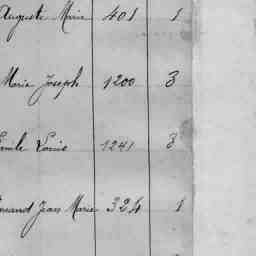 Auguste Marie 401 1
Marie Joseph 1200 3
Emile Louis 1241 3
Jean Marie 324 1